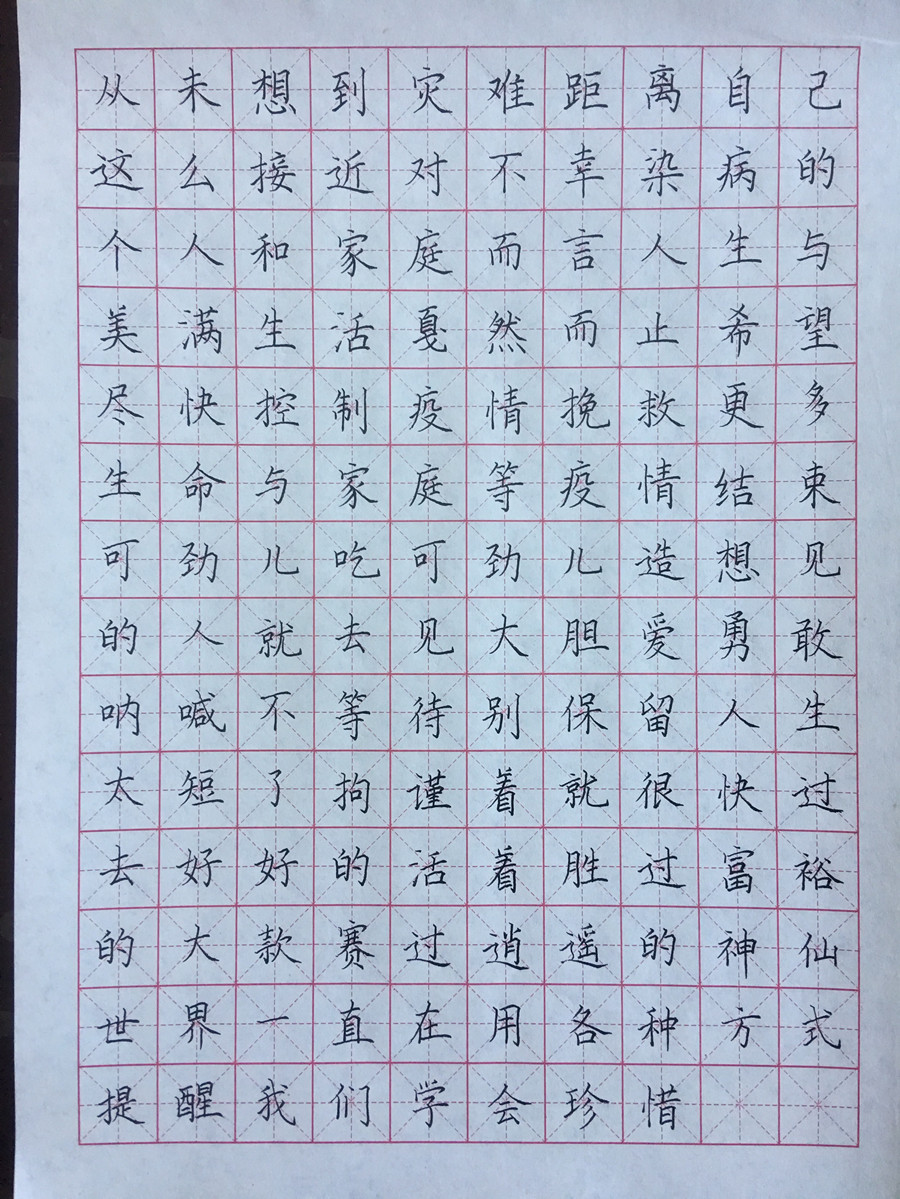 从未想到灾难距离自己
这么接近对不幸染病的
个人和家庭而言人生与
美满生活戛然而止希望
尽快控制疫情挽救更多
生命与家庭等疫情结束
可劲儿吃可劲儿造想见
的人就去见大胆爱勇敢
呐喊不等待别保留人生
太短了拘谨着就很快过
去好好的活着胜过富裕
的大款赛过逍遥的神仙
世界一直在用各种方式
提醒我们学会珍惜